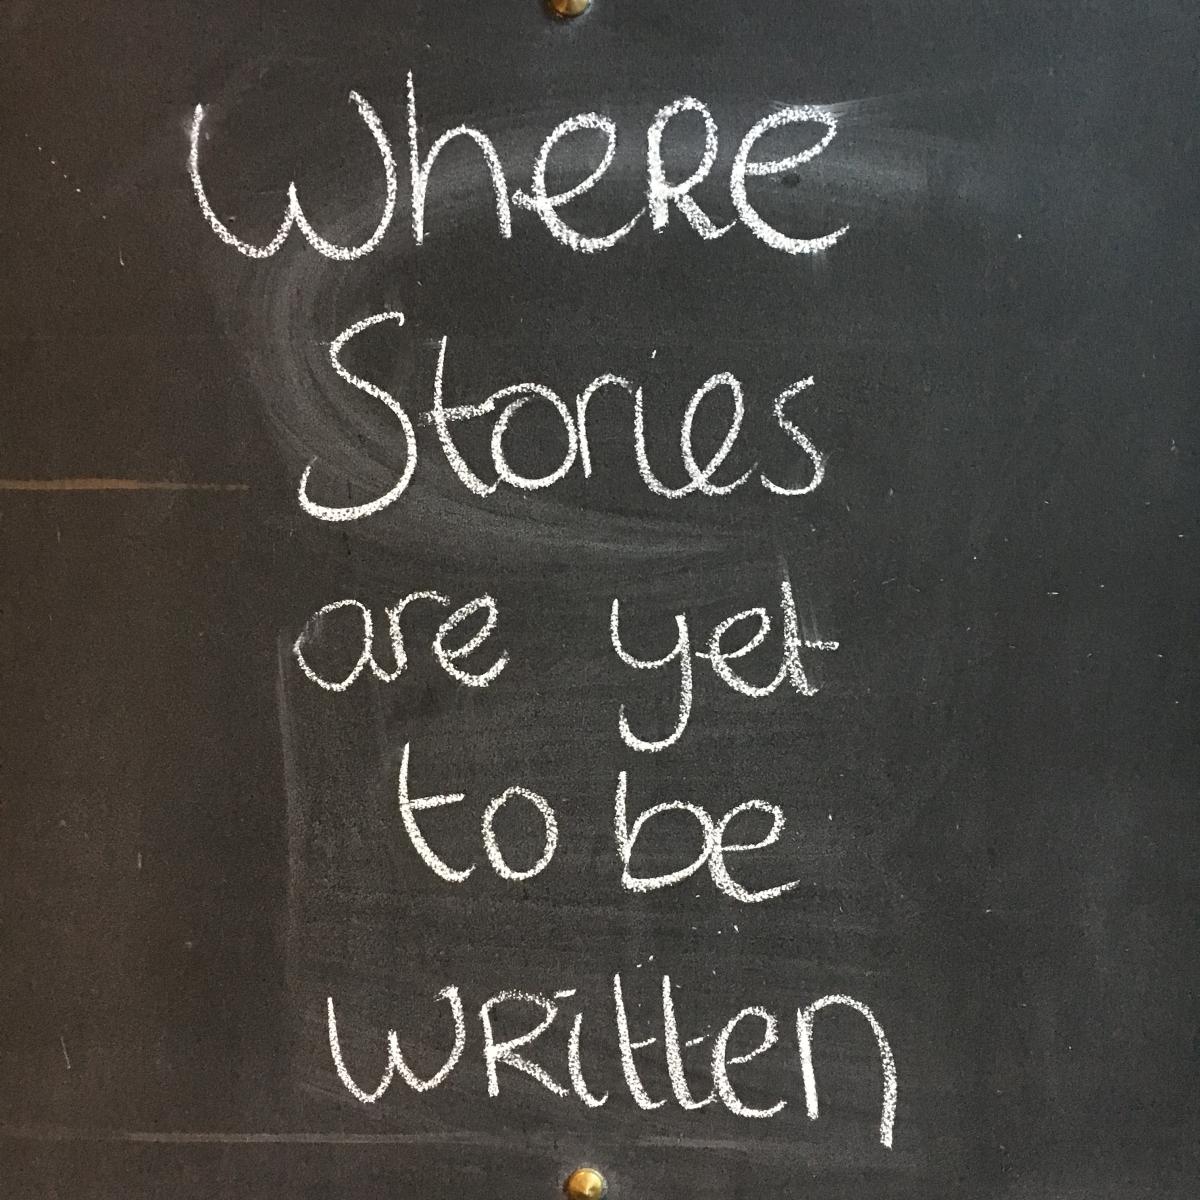 Where
Stories
are yet
to be
written